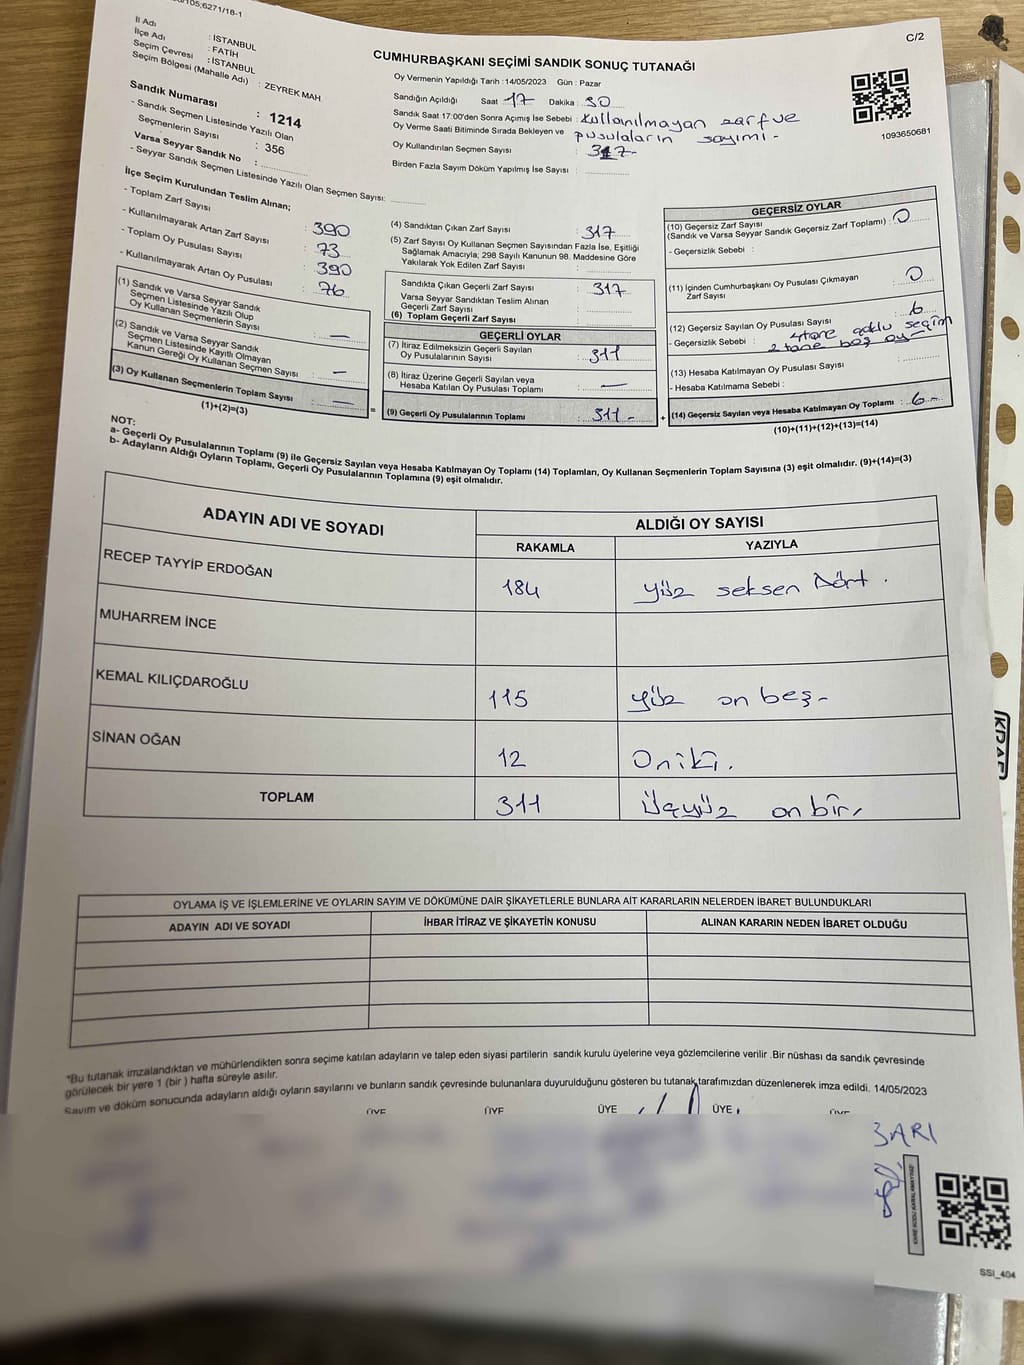 105,6271/18-1
C/2
İl Adı : İSTANBUL
İlçe Adı : FATİH
Seçim Çevresi : İSTANBUL
Seçim Bölgesi (Mahalle Adı) : ZEYREK MAH
Sandık Numarası : 1214
- Sandık Seçmen Listesinde Yazılı Olan
Seçmenlerin Sayısı : 356
Varsa Seyyar Sandık No :
- Seyyar Sandık Seçmen Listesinde Yazılı Olan Seçmen Sayısı:
CUMHURBAŞKANI SEÇİMİ SANDIK SONUÇ TUTANAĞI
Oy Vermenin Yapıldığı Tarih :14/05/2023 Gün : Pazar
Sandığın Açıldığı Saat 17 Dakika : 30
Sandık Saat 17:00'den Sonra Açımış İse Sebebi : Kullanılmayan zarf ve
Oy Verme Saati Bitiminde Sırada Bekleyen ve pusulaların sayımı -
Oy Kullandırılan Seçmen Sayısı : 317-
Birden Fazla Sayım Döküm Yapılmış İse Sayısı :
1093650681
İlçe Seçim Kurulundan Teslim Alınan;
- Toplam Zarf Sayısı : 390
- Kullanılmayarak Artan Zarf Sayısı : 73
- Toplam Oy Pusulası Sayısı : 390
- Kullanılmayarak Artan Oy Pusulası : 76
(1) Sandık ve Varsa Seyyar Sandık
Seçmen Listesinde Yazılı Olup
Oy Kullanan Seçmenlerin Sayısı : —
(2) Sandık ve Varsa Seyyar Sandık
Seçmen Listesinde Kayıtlı Olmayan
Kanun Gereği Oy Kullanan Seçmen Sayısı : —
(3) Oy Kullanan Seçmenlerin Toplam Sayısı : —
(1)+(2)=(3)
(4) Sandıktan Çıkan Zarf Sayısı : 317
(5) Zarf Sayısı Oy Kullanan Seçmen Sayısından Fazla İse, Eşitliği
Sağlamak Amacıyla; 298 Sayılı Kanunun 98. Maddesine Göre
Yakılarak Yok Edilen Zarf Sayısı :
Sandıkta Çıkan Geçerli Zarf Sayısı : 317
Varsa Seyyar Sandıktan Teslim Alınan
Geçerli Zarf Sayısı :
(6) Toplam Geçerli Zarf Sayısı :
GEÇERLİ OYLAR
(7) İtiraz Edilmeksizin Geçerli Sayılan
Oy Pusulalarının Sayısı : 311
(8) İtiraz Üzerine Geçerli Sayılan veya
Hesaba Katılan Oy Pusulası Toplamı : —
= (9) Geçerli Oy Pusulalarının Toplamı : 311 -
GEÇERSİZ OYLAR
(10) Geçersiz Zarf Sayısı : 0
(Sandık ve Varsa Seyyar Sandık Geçersiz Zarf Toplamı)
- Geçersizlik Sebebi :
(11) İçinden Cumhurbaşkanı Oy Pusulası Çıkmayan
Zarf Sayısı : 0
(12) Geçersiz Sayılan Oy Pusulası Sayısı : 6
- Geçersizlik Sebebi : 4 tane çoklu seçim
2 tane boş oy -
(13) Hesaba Katılmayan Oy Pusulası Sayısı :
- Hesaba Katılmama Sebebi :
+ (14) Geçersiz Sayılan veya Hesaba Katılmayan Oy Toplamı : 6 -
(10)+(11)+(12)+(13)=(14)
NOT:
a- Geçerli Oy Pusulalarının Toplamı (9) ile Geçersiz Sayılan veya Hesaba Katılmayan Oy Toplamı (14) Toplamları, Oy Kullanan Seçmenlerin Toplam Sayısına (3) eşit olmalıdır. (9)+(14)=(3)
b- Adayların Aldığı Oyların Toplamı, Geçerli Oy Pusulalarının Toplamına (9) eşit olmalıdır.
ADAYIN ADI VE SOYADI ALDIĞI OY SAYISI
RAKAMLA YAZIYLA
RECEP TAYYİP ERDOĞAN 184 yüz seksen dört .
MUHARREM İNCE
KEMAL KILIÇDAROĞLU 115 yüz on beş -
SİNAN OĞAN 12 Oniki.
TOPLAM 311 Üçyüz on bir,
OYLAMA İŞ VE İŞLEMLERİNE VE OYLARIN SAYIM VE DÖKÜMÜNE DAİR ŞİKAYETLERLE BUNLARA AİT KARARLARIN NELERDEN İBARET BULUNDUKLARI
ADAYIN ADI VE SOYADI İHBAR İTİRAZ VE ŞİKAYETİN KONUSU ALINAN KARARIN NEDEN İBARET OLDUĞU
*Bu tutanak imzalandıktan ve mühürlendikten sonra seçime katılan adayların ve talep eden siyasi partilerin sandık kurulu üyelerine veya gözlemcilerine verilir .Bir nüshası da sandık çevresinde
görülecek bir yere 1 (bir ) hafta süreyle asılır.
Sayım ve döküm sonucunda adayların aldığı oyların sayılarını ve bunların sandık çevresinde bulunanlara duyurulduğunu gösteren bu tutanak tarafımızdan düzenlenerek imza edildi. 14/05/2023
ÜYE ÜYE ÜYE ÜYE ÜYE
KARE KODU KARALAMAYINIZ!
SSI_404